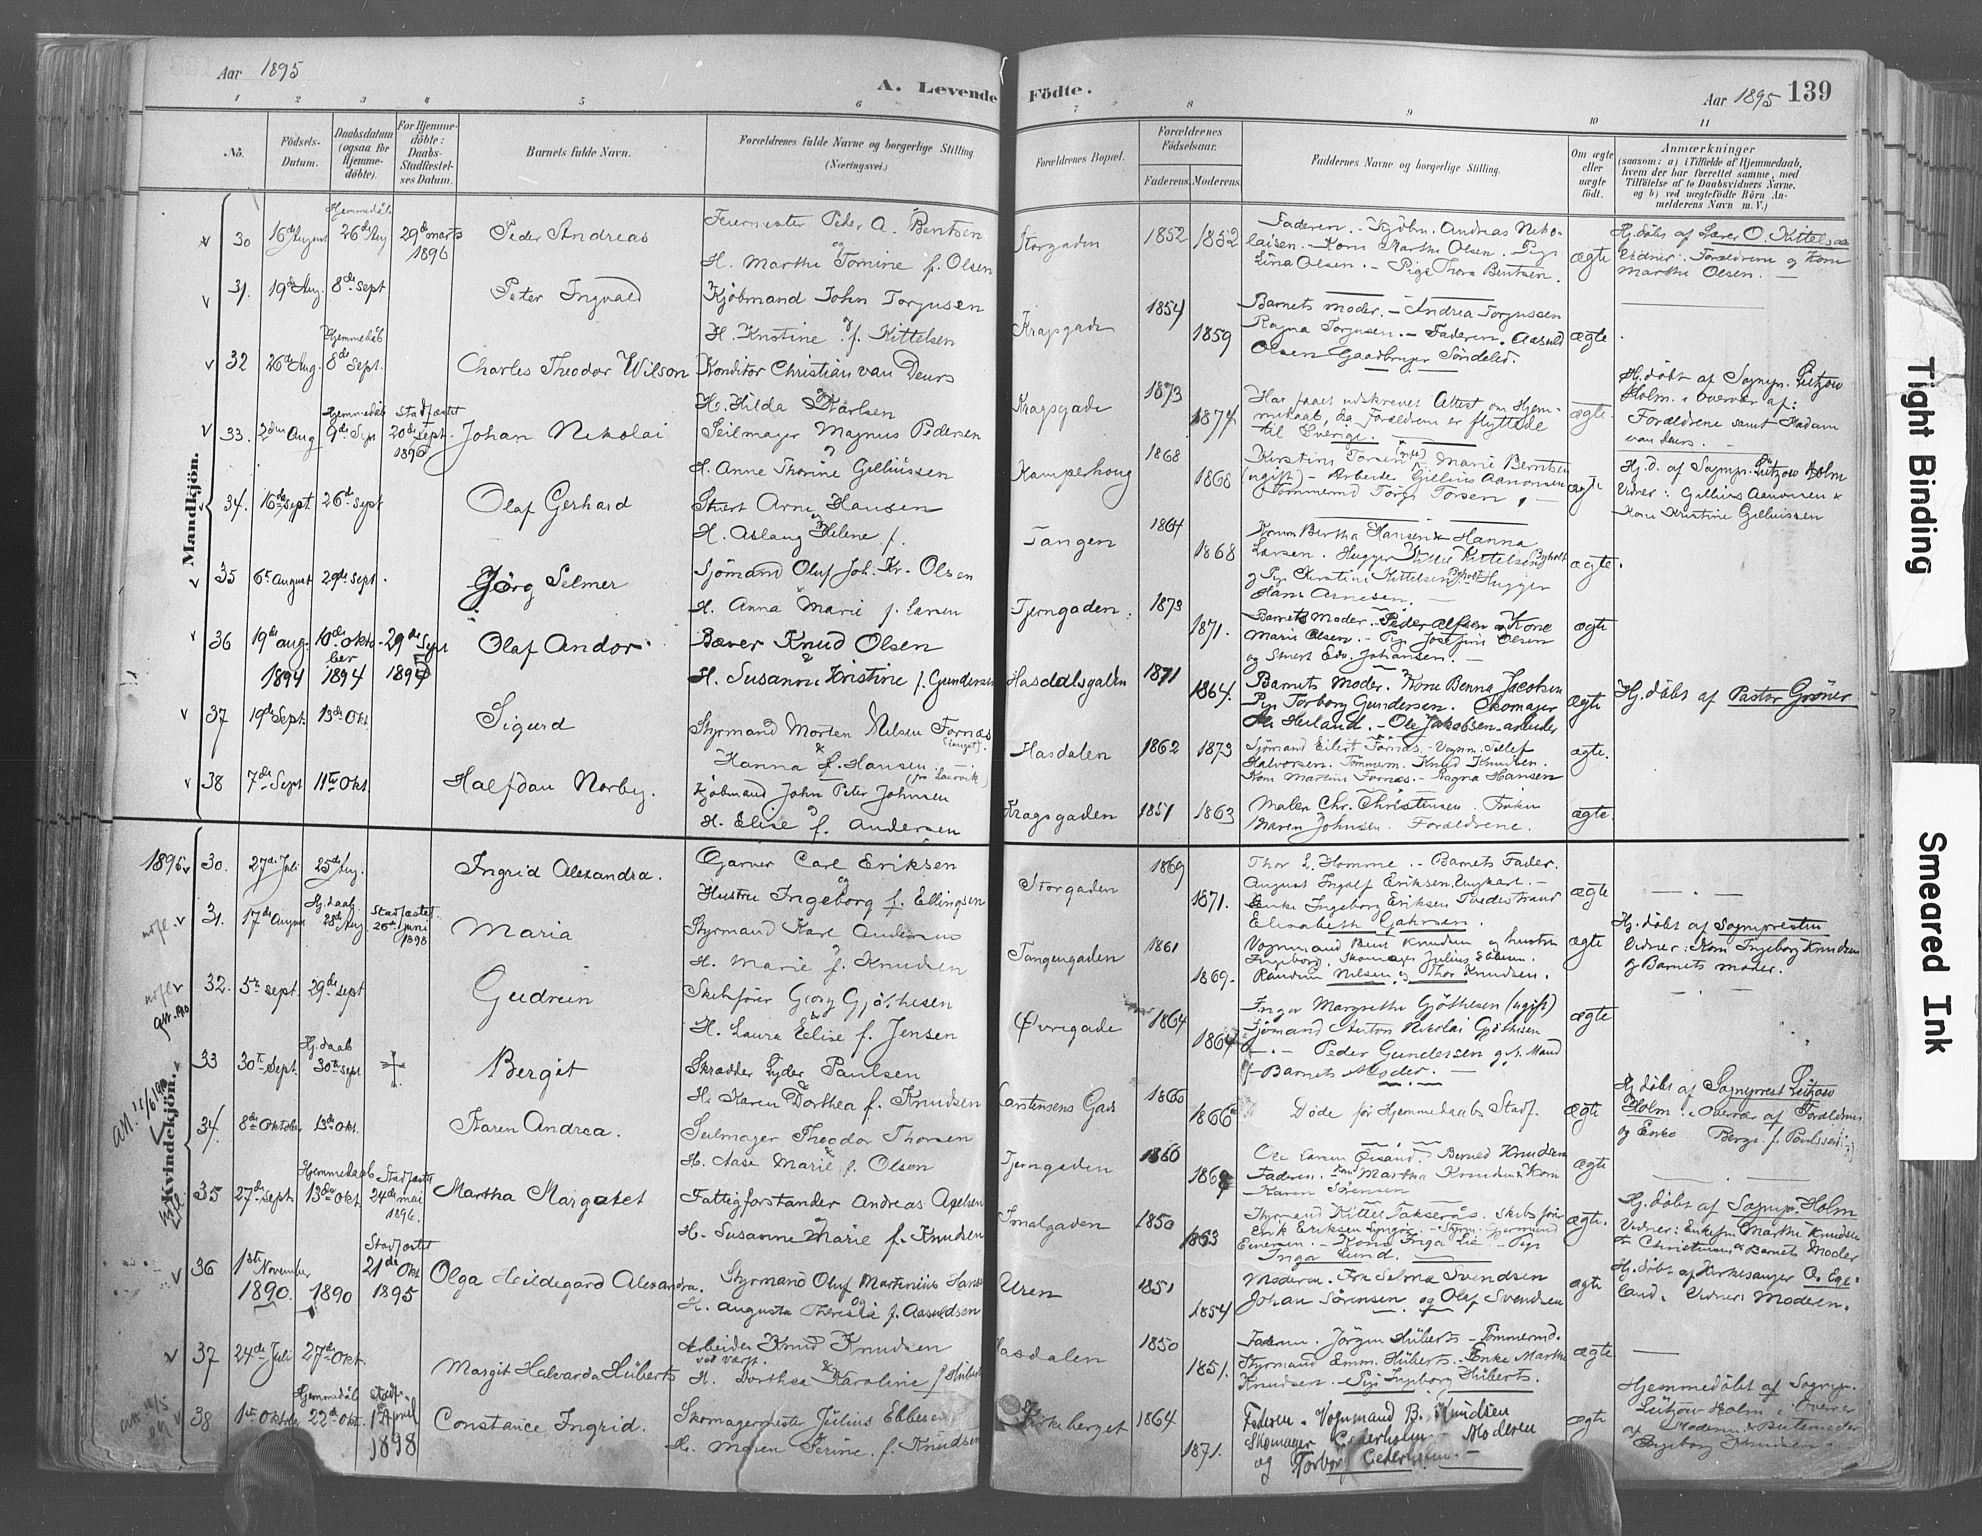 Aar 1895
A. Levende Födte.
Aar 1895 139
1 2 3 4 5 6 7 8 9 10 11
No.
Födsels-
Datum.
Daabsdatum
(ogsaa for
Hjemme-
döbte).
For Hjemme-
döbte:
Daabs-
Stadfæstel-
ses Datum.
Barnets fulde Navn.
Forældrenes fulde Navne og borgerlige Stilling
(Næringsvei.)
Forældrenes Bopæl.
Forældrenes
Födselsaar.
Faderens. Moderens.
Faddernes Navne og borgerlige Stilling.
Om ægte
eller
uægte
födt.
Anmærkninger
(saasom: a) i Tilfælde af Hjemmedaab,
hvem der har forrettet samme, med
Tilföielse af to Daabsvidners Navne,
og b) ved uægtefödte Börn An-
melderens Navn m. V.)
Mandkjön.
30 16de August Hjemmedöb 26de Aug 29de marts 1896 Peder Andreas
Peder A. Bentsen
og
H. Marthe Tomine f. Olsen
Storgaden 1852 1852
Faderen. - Andreas Niko-
laisen. - Kone Marthe Olsen. Pige
Lina Olsen. - Pige Thora Bentsen.
ægte
Hj. døbt af Lærer O. Kittelsen
Vidner: Forældrene og Kone
Marthe Olsen. -
31. 19de Aug. 8de Sept Peter Ingvald
Kjøbmand John Torjusen
H. Kristine f. Kittelsen
Kragsgade 1854 1859
Barnets moder. - Andrea Torjussen
Ragna Torjusen. - Faderen. Aasuld
Olsen Gaardbruger Söndeled.
ægte
32 26de Aug. Hjemmedöb 8de Sept. Charles Theodor Wilson
Konditor Christian van Deurs
og
H. Hilda Karlsen
Kragsgade 1873 1874
Har faaet udskrevet Attest om Hjem-
medaab, da Forældrene er flyttede
til Sverige.
ægte.
Hj. døbt af Sognep. Lützow
Holm. i Overvær af:
Forældrene samt Madam
van Deurs.
33. 2den Aug Hjemmedöb 9de Sept Stadfæstet 20de Sept. 1896 Johan Nikolai
Seilmager Magnus Pedersen
H. Anne Thorine Gelliussen
Kamperhoug 1868 1868
Kirstine Torsen Marie Berntsen
(ugift) - Arbeider Gellius Aanonsen
Tömmermd Törge Torsen
ægte
Hj. d. af Sognep. Lützow Holm
Vidner: Gellius Aanonsen &
Kone Kristine Gelliussen
34. 16de Sept 26de Sept Olaf Gerhard
Stuert Arne Hansen
og
H. Aslaug Helene f.
Tangen 1864 1868
Kone Bertha Hansen & Hanna
Larsen. Hugger Kittelsen
og Pige Kirstine Kittelsen Hugger
Hans Arnesen.
ægte.
35 6te August 29de Sept. Jörg Selmer
Sjömand Oluf Joh. Kr. Olsen
H. Anna Marie f. Larsen
Tjerngaden. 1873 1871.
Barnets Moder. Peder Alfsen og Kone
Marie Olsen. - Pige Josefine Olsen
og Stuert Edv. Johansen. -
ægte
36 19de aug. 1894 10de Oktober 1894 29de Sept 1895 Olaf Andor
Bæver Knud Olsen
H. Susanne Kristine f. Gundersen
Hasdalsgaden 1871 1864.
Barnets Moder. Kone Benna Jacobsen
Pige Torborg Gundersen. Skomager
M. Heiland. - Ole Jakobsen arbeider
ægte
Hj. døbt af Pastor Gröner
37 19de Sept. 13de Okt. Sigurd
Styrmand Morten Nilsen Fornæs
&
Hanna f. Hansen. (fra Laurvik)
Hasdalen 1862 1873
Sjømand Eilert Fornæs. - Vognm. Tellef
Halvorsen. Tömmerm. Knud Knudsen.
Kone Martine Fornæs. - Ragna Hansen
ægte.
38 7de Sept 11te Okt. Halfdan Norby.
Kjøbmand John Peter Johnsen
H. Elise f. Andersen
Kragsgaden 1851 1863
Maler Chr. Christensen. Fröken
Maren Johnsen. Forældrene.
ægte.
Kvindekjön.
1895 30. 27de Juli 25de Aug. Ingrid Alexandra.
Garver Carl Eriksen
og
Hustru Ingeborg f. Ellingsen
Storgaden 1869 1871.
Thor L. Homme. - Barnets Fader.
August Ingolf Eriksen, Ungkarl. -
Enke Ingeborg Eriksen Tvedestrand
Elisabeth Gahrsen.
ægte
31. 17de August Hj. daab 28de Aug Stadfæstet 26de Juni 1898 Maria
Styrmand Karl Andersen
H. Marie f. Knudsen
Tangengaden 1861 1869.
Vognmand Bent Knudsen og hustru
Ingeborg. Skomager Julius Ebbesen.
Randine Nilsen, og Thor Knudsen.
ægte
Hj. døbt af Sognepresten
Vidner: Kone Ingeborg Knudsen
og Barnets moder.
32. 5te Sept. 29de Sept Gudrun
Skibsfører Georg Gjöthesen
&
H. Laura Elise f. Jensen
Øvregade 1864 1864
Inga Margrethe Gjöthesen (ugift)
Sjömand Anton Nikolai Gjöthesen
Peder Gundersen g. S. Mand
Barnets Moder. -
ægte
33 30te Sept. Hj. daab 30te Sept Bergit
Skrædder Lyder Paulsen
&
H. Karen Dorthea f. Knudsen
Carstensens Gade 1866 1866
Døde før Hjemmedaabs Stadf.
ægte
Hj. døbt af Sogneprest Lützow
Holm i Overvær af Forældrene
og Enke Berge f. Paulssen
34. 8de Oktober 13de Okt. Karen Andrea.
Seilmager Theodor Thorsen
&
H. Aase Marie f. Olsen
Tjerngaden 1860
Ole Larsen Øisand. Berned Knudsen
Faderen. Kone Martha Knudsen & Kone
Karen Sörensen
ægte
35 27de Sept Hjemmedaab 13de Okt Stadfæstet 24de mai 1896. Martha Margaret
Fattigforstander Andreas Axelsen
H. Susanne Marie f. Knudsen
Smalgaden 1850 1863
Styrmand Kittel Taksersaas. Skibsfører
Erik Eriksen Lyngör. - Styrm. Gjermund
Einersen. - Kone Inga Lie - Pige
Inga Lund.
ægte.
Hj. døbt af Sognep. Holm
Vidner: Marthe Knudsen
Christensen & Barnets Moder
36 1ste November 1890. 1890 Stadfæstet 21de Okt 1895 Olga Hildegard Alexandra.
Styrmand Oluf Martinius Hansen
og
H. Augusta Theresia f. Aasuldsen
Uren 1851 1854
Moderen. Frk Selma Svendsen
Johan Sörensen og Olaf Svendsen
ægte
Hj. døbt af Kirkesanger O. Ege-
land. Vidner: Moderen.
37 24de Juli 27de Okt. Margit Halvarda Hüberts
Arbeider Knud Knudsen
ved værft.
&
H. Dorthea Karoline f. Hüberts
Hasdalen 1850 1851.
Faderen. Jörgen Hüberts - Tömmermd.
Styrmand Emm. Hüberts. - Enke Marthe
Knudsen. - Pige Ingeborg Hüberts.
ægte
38 1ste Oktober Hjemmedöb 22de Okt. Stadf. 1 April 1898 Constance Ingrid.
Skomagermester Julius Ebbesen
H. Maren Serine f. Knudsen
Kirkeberget 1864 1871.
Faderen. Vognmand B. Knudsen
Skomager Cederholm Moderen
og Torborg Cederholm. -
ægte
Hjemmedöbt af Sognep.
Lützow Holm i Overvær
af Moderen & Bestemoder
Ingeborg Knudsen
Tight Binding
Smeared Ink